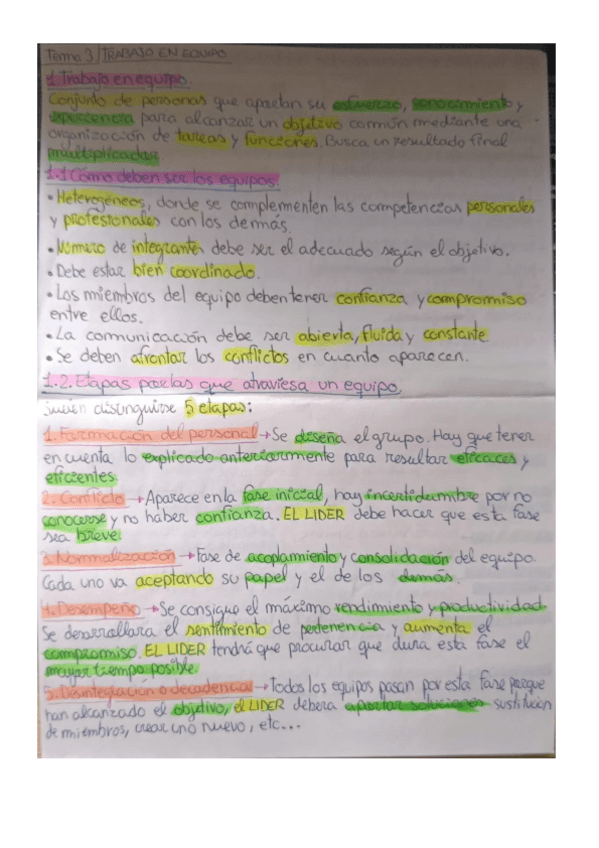 Tema 3/TRABAJO EN EQUIPO
1. Trabajo en equipo.
Conjunto de personas que aportan su esfuerzo, conocimiento y
experiencia para alcanzar un objetivo común mediante una
organización de tareas y funciones. Busca un resultado final
multiplicador.
1.1 Cómo deben ser los equipos.
• Heterogéneos, donde se complementen las competencias personales
y profesionales con los demás.
• Número de integrantes debe ser el adecuado según el objetivo.
• Debe estar bien coordinado.
• Los miembros del equipo deben tener confianza y compromiso
entre ellos.
• La comunicación debe ser abierta, fluida y constante
• Se deben afrontar los conflictos en cuanto aparecen.
1.2. Etapas por las que atraviesa un equipo.
Suelen distinguirse 5 etapas:
1. Formación del personal → Se diseña el grupo. Hay que tener
en cuenta lo explicado anteriormente para resultar eficaces y
eficientes.
2. Conflicto → Aparece en la fase inicial, hay incertidumbre por no
conocerse y no haber confianza. EL LIDER debe hacer que esta fase
sea breve.
3. Normalización → Fase de acoplamiento y consolidación del equipo.
Cada uno va aceptando su papel y el de los demás.
4. Desempeño → Se consigue el máximo rendimiento y productividad.
Se desarrollara el sentimiento de pertenencia y aumenta el
compromiso. EL LIDER tendrá que procurar que dura esta fase el
mayor tiempo posible.
5. Desintegración o decadencia → Todos los equipos pasan por esta fase porque
han alcanzado el objetivo, el LIDER debera aportar soluciones sustitución
de miembros, crear uno nuevo, etc...